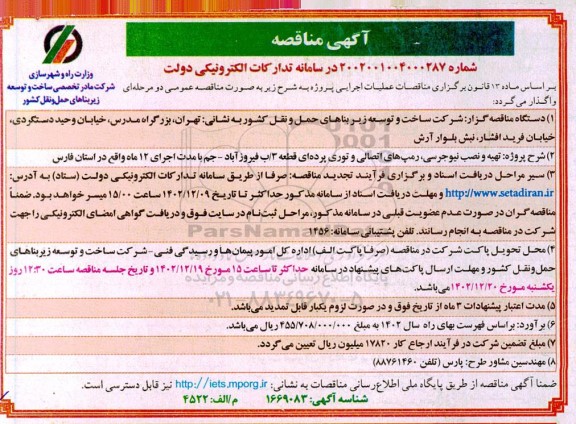 آگهی مناقصه
شماره ۲۰۰۲۰۰۱۰۰۴۰۰۰۲۸۷ در سامانه تدارکات الکترونیکی دولت
وزارت راه و شهرسازی
شرکت مادر تخصصی ساخت و توسعه
زیربناهای حمل و نقل کشور
بر اساس ماده ۱۳ قانون برگزاری مناقصات عملیات اجرایی پروژه به شرح زیر به صورت مناقصه عمومی دو مرحله‌ای
واگذار می‌گردد:
۱) دستگاه مناقصه گزار: شرکت ساخت و توسعه زیربناهای حمل و نقل کشور به نشانی: تهران، بزرگراه مدرس، خیابان وحید دستگردی،
خیابان فرید افشار، نبش بلوار آرش
۲) شرح پروژه: تهیه و نصب نیوجرسی، رمپ‌های اتصالی و توری پرده‌ای قطعه ۳/ب فیروزآباد - جم با مدت اجرای ۱۲ ماه واقع در استان فارس
۳) سیر مراحل دریافت اسناد و برگزاری فرآیند تجدید مناقصه: صرفا از طریق سامانه تدارکات الکترونیکی دولت (ستاد) به آدرس:
http://www.setadiran.ir و مهلت دریافت اسناد از سامانه مذکور حداکثر تا تاریخ ۱۴۰۲/۱۲/۰۹ ساعت ۱۵/۰۰ میسر خواهد بود. ضمناً
مناقصه گران در صورت عدم عضویت قبلی در سامانه مذکور، مراحل ثبت نام در سایت فوق و دریافت گواهی امضای الکترونیکی را جهت
شرکت در مناقصه به انجام رسانند. تلفن پشتیبانی سامانه: ۱۴۵۶
۴) محل تحویل پاکت شرکت در مناقصه (صرفا پاکت الف) اداره کل امور پیمان‌ها و رسیدگی فنی - شرکت ساخت و توسعه زیربناهای
حمل و نقل کشور و مهلت ارسال پاکت‌های پیشنهاد در سامانه حداکثر تا ساعت ۱۵ مورخ ۱۴۰۲/۱۲/۱۹ و تاریخ جلسه مناقصه ساعت ۱۲:۳۰ روز
یکشنبه مورخ ۱۴۰۲/۱۲/۲۰ می‌باشد.
۵) مدت اعتبار پیشنهادات ۳ ماه از تاریخ فوق و در صورت لزوم یکبار قابل تمدید می‌باشد.
۶) برآورد: براساس فهرست بهای راه سال ۱۴۰۲ به مبلغ ۴۵۵/۷۰۸/۰۰۰/۰۰۰ ریال می‌باشد.
۷) مبلغ تضمین شرکت در فرآیند ارجاع کار ۱۷۸۲۰ میلیون ریال تعیین می‌گردد.
۸) مهندسین مشاور طرح: پارس (تلفن ۸۸۷۶۱۴۶۰)
ضمنا آگهی مناقصه از طریق پایگاه ملی اطلاع رسانی مناقصات به نشانی: http://iets.mporg.ir نیز قابل دسترسی است.
شناسه آگهی: ۱۶۶۹۰۸۳ م/الف: ۴۵۲۲